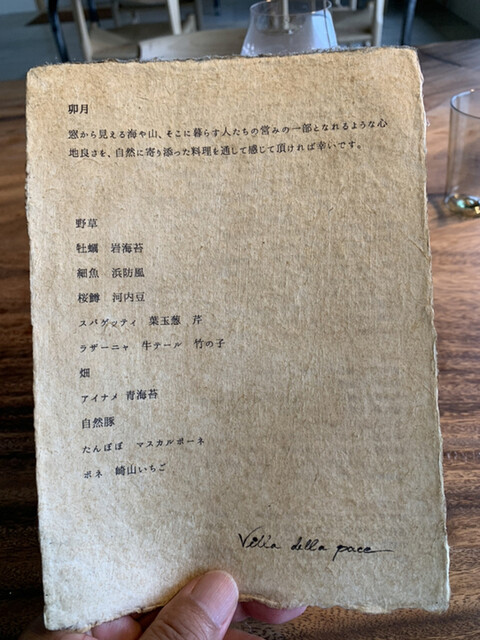 卯月
窓から見える海や山、そこに暮らす人たちの営みの一部となれるような心
地良さを、自然に寄り添った料理を通して感じて頂ければ幸いです。
野草
牡蠣 岩海苔
細魚 浜防風
桜鱒 河内豆
スパゲッティ 葉玉葱 芹
ラザーニャ 牛テール 竹の子
畑
アイナメ 青海苔
自然豚
たんぽぽ マスカルポーネ
ボネ 崎山いちご
Villa della pace